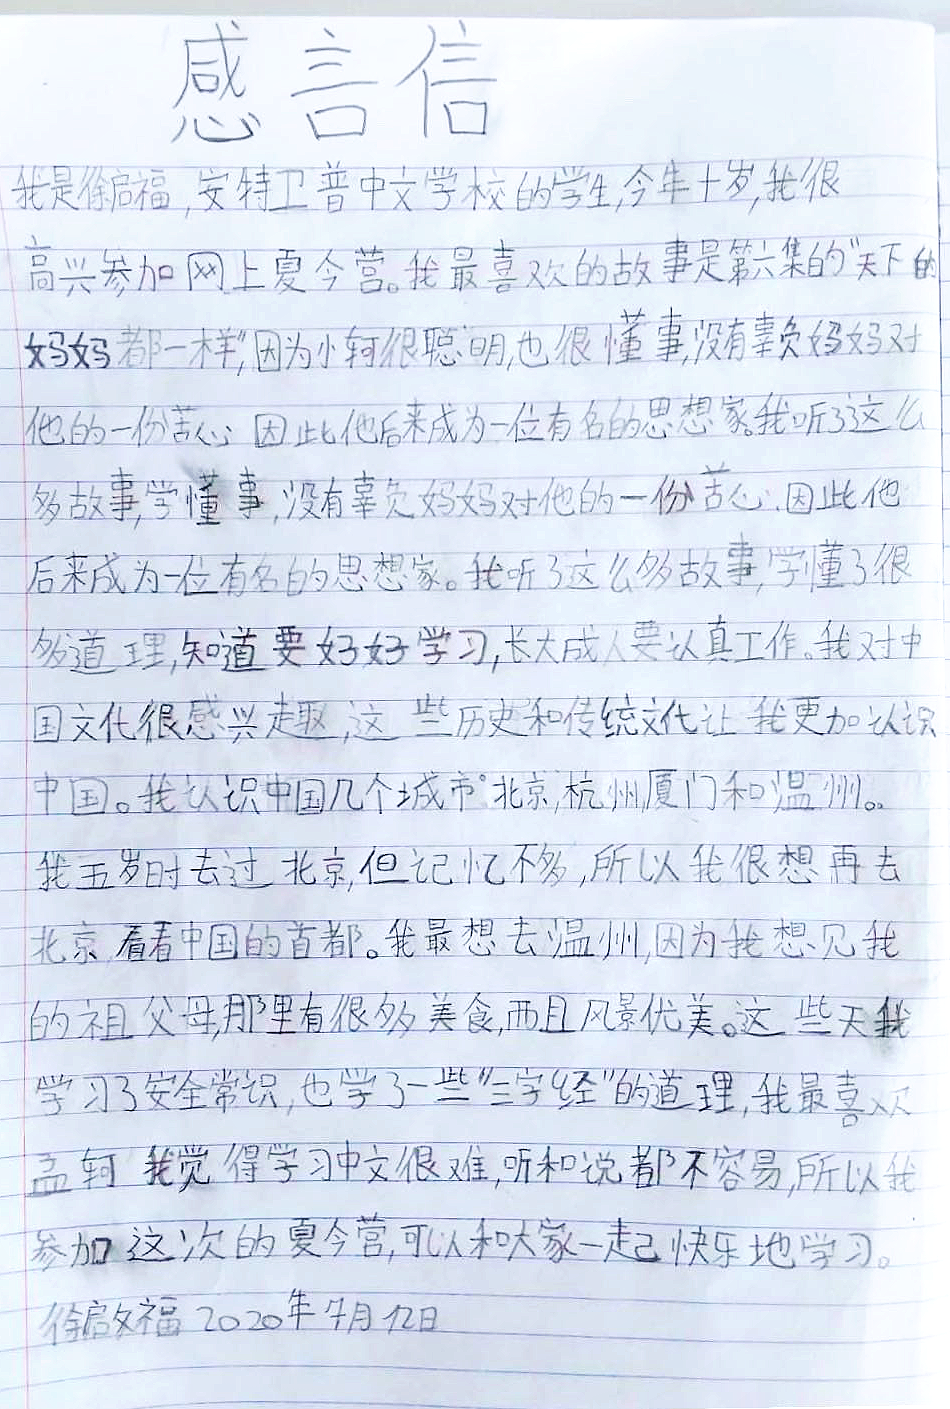 感言信
我是徐启福,安特卫普中文学校的学生,今年十岁,我很
高兴参加网上夏令营。我最喜欢的故事是第六集的"天下的
妈妈都一样",因为小轲很聪明,也很懂事,没有辜负妈妈对
他的一份苦心.因此他后来成为一位有名的思想家。我听了这么
多故事,学懂事,没有辜负妈妈对他的一份苦心.因此他
后来成为一位有名的思想家。我听了这么多故事,学懂了很
多道理,知道要好好学习,长大成人要认真工作。我对中
国文化很感兴趣,这些历史和传统文化让我更加认识
中国。我认识中国几个城市:北京,杭州,厦门和温州。
我五岁时去过北京,但记忆不多,所以我很想再去
北京,看看中国的首都。我最想去温州,因为我想见我
的祖父母,那里有很多美食,而且风景优美。这些天我
学习了安全常识,也学了一些"三字经"的道理,我最喜欢
孟轲 我觉得学习中文很难,听和说都不容易,所以我
参加这次的夏令营,可以和大家一起快乐地学习。
徐启福 2020年7月12日